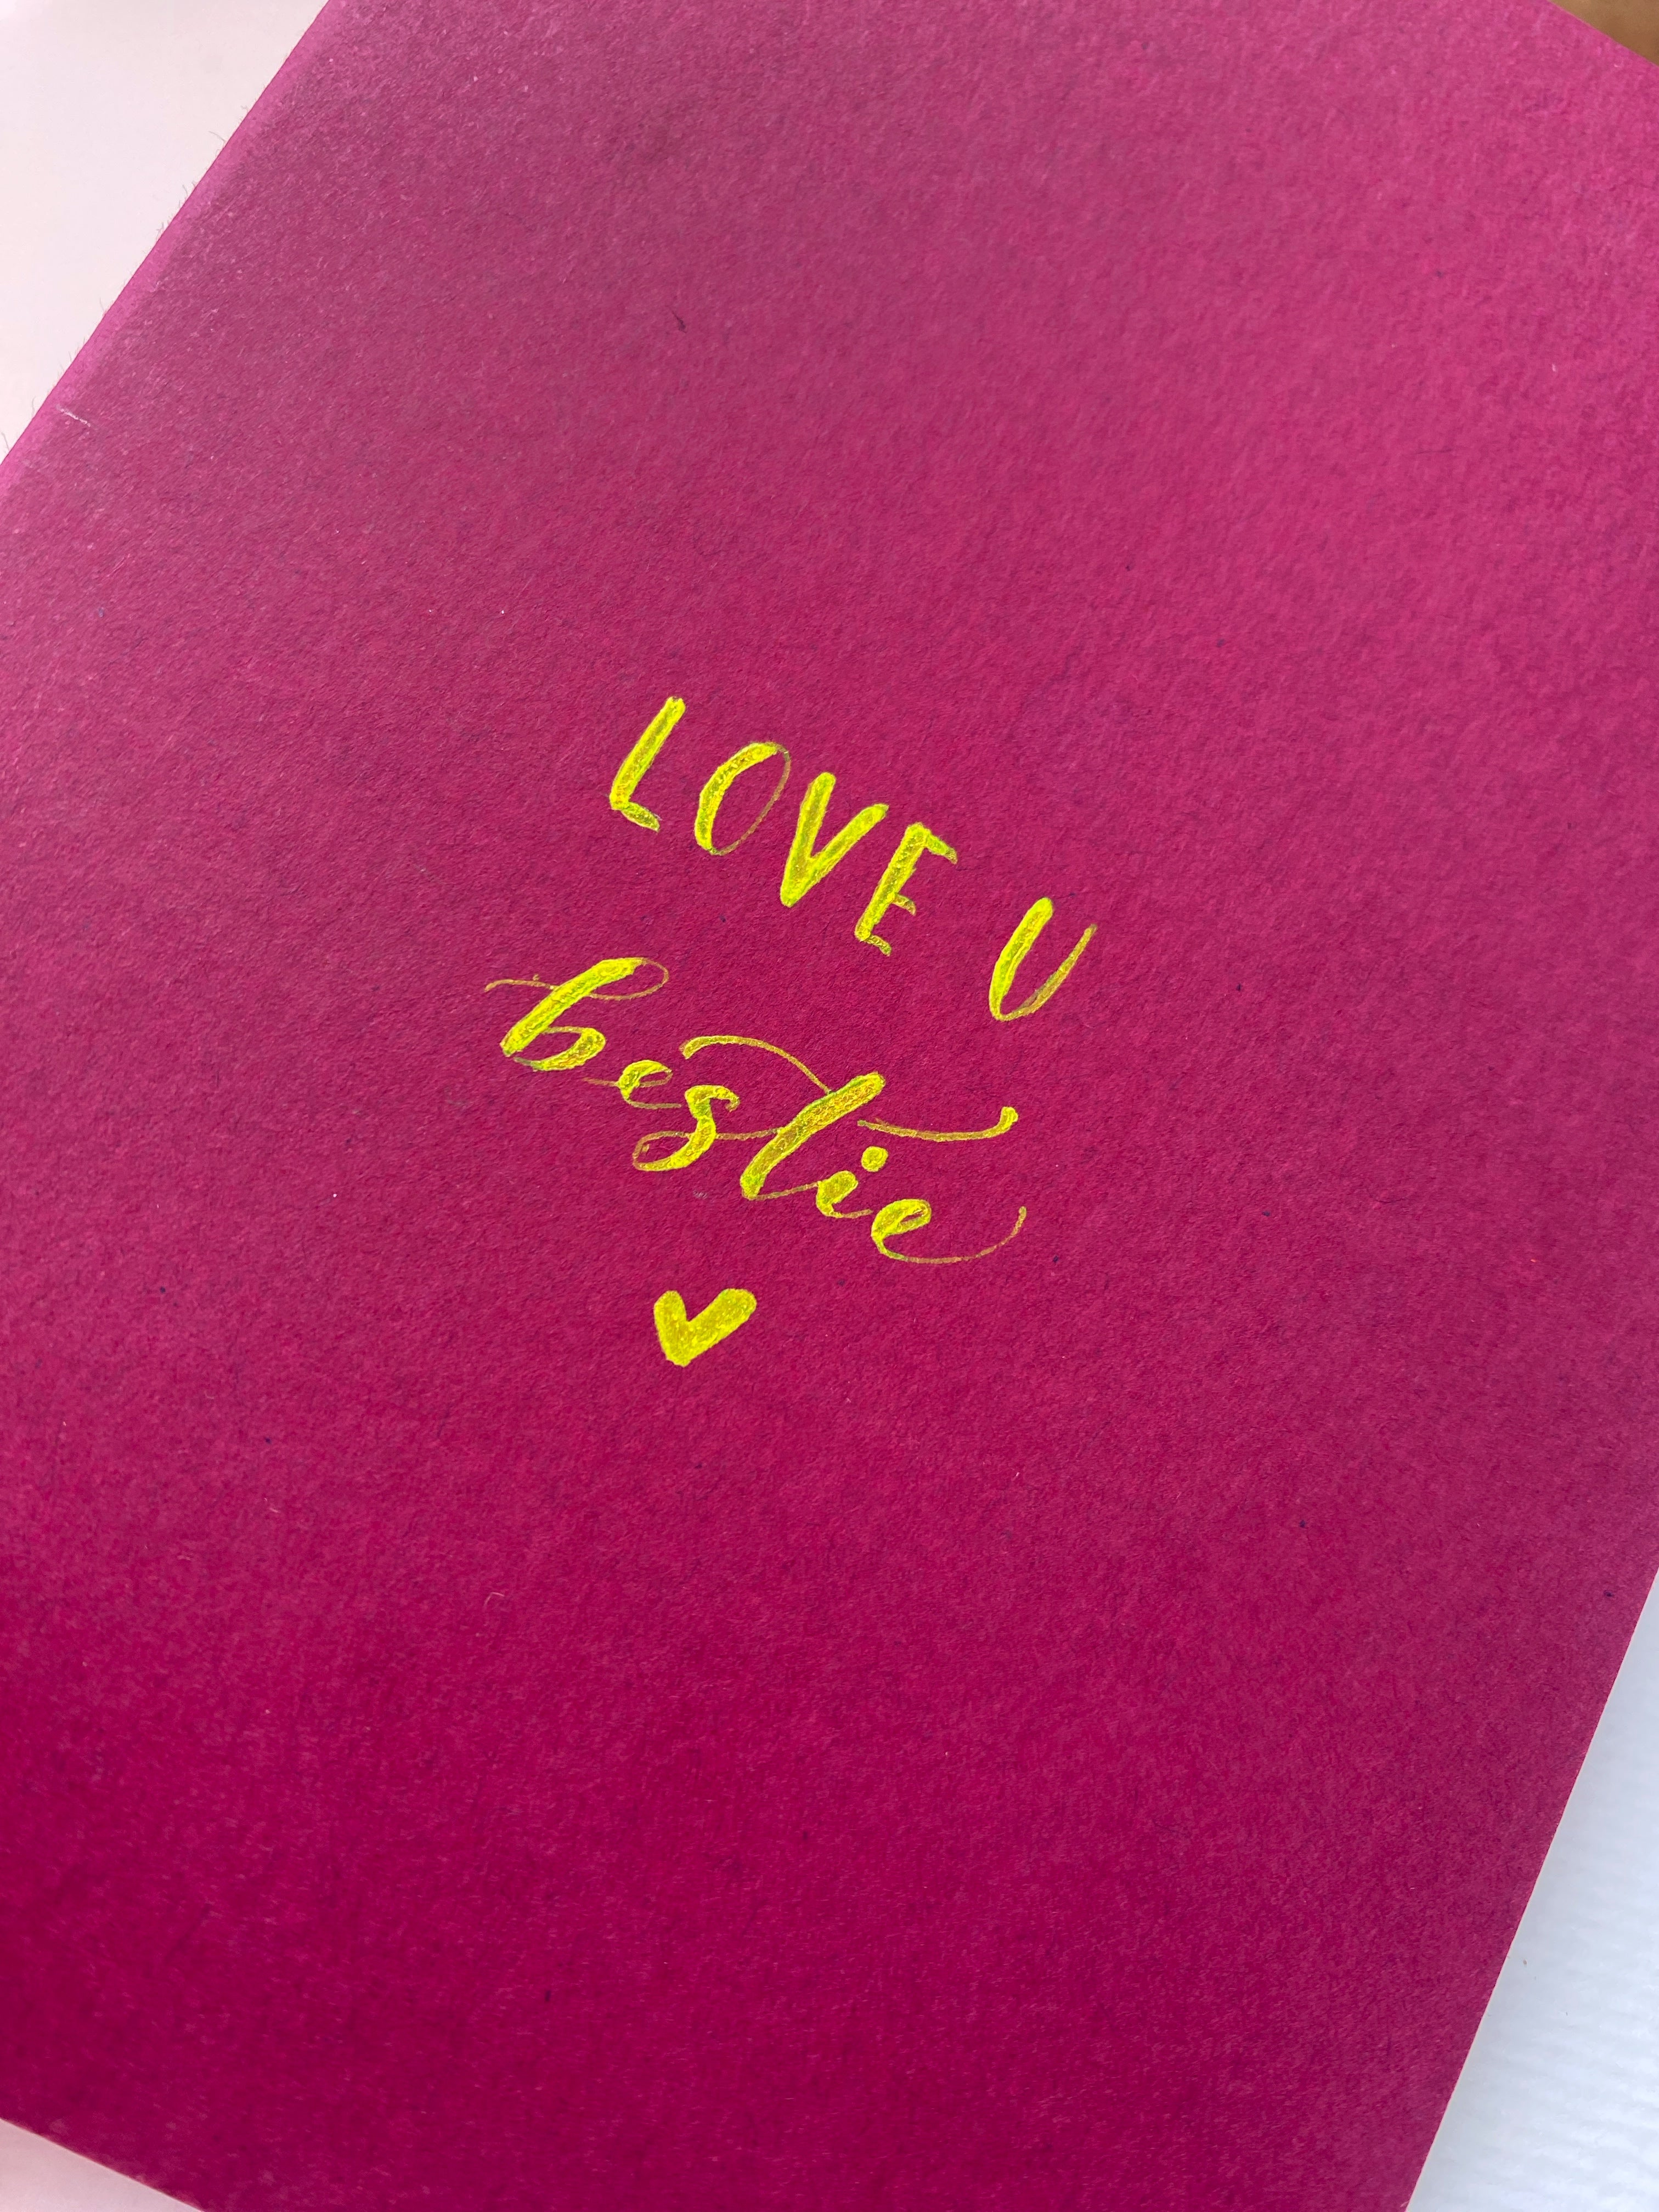 LOVE U
bestie